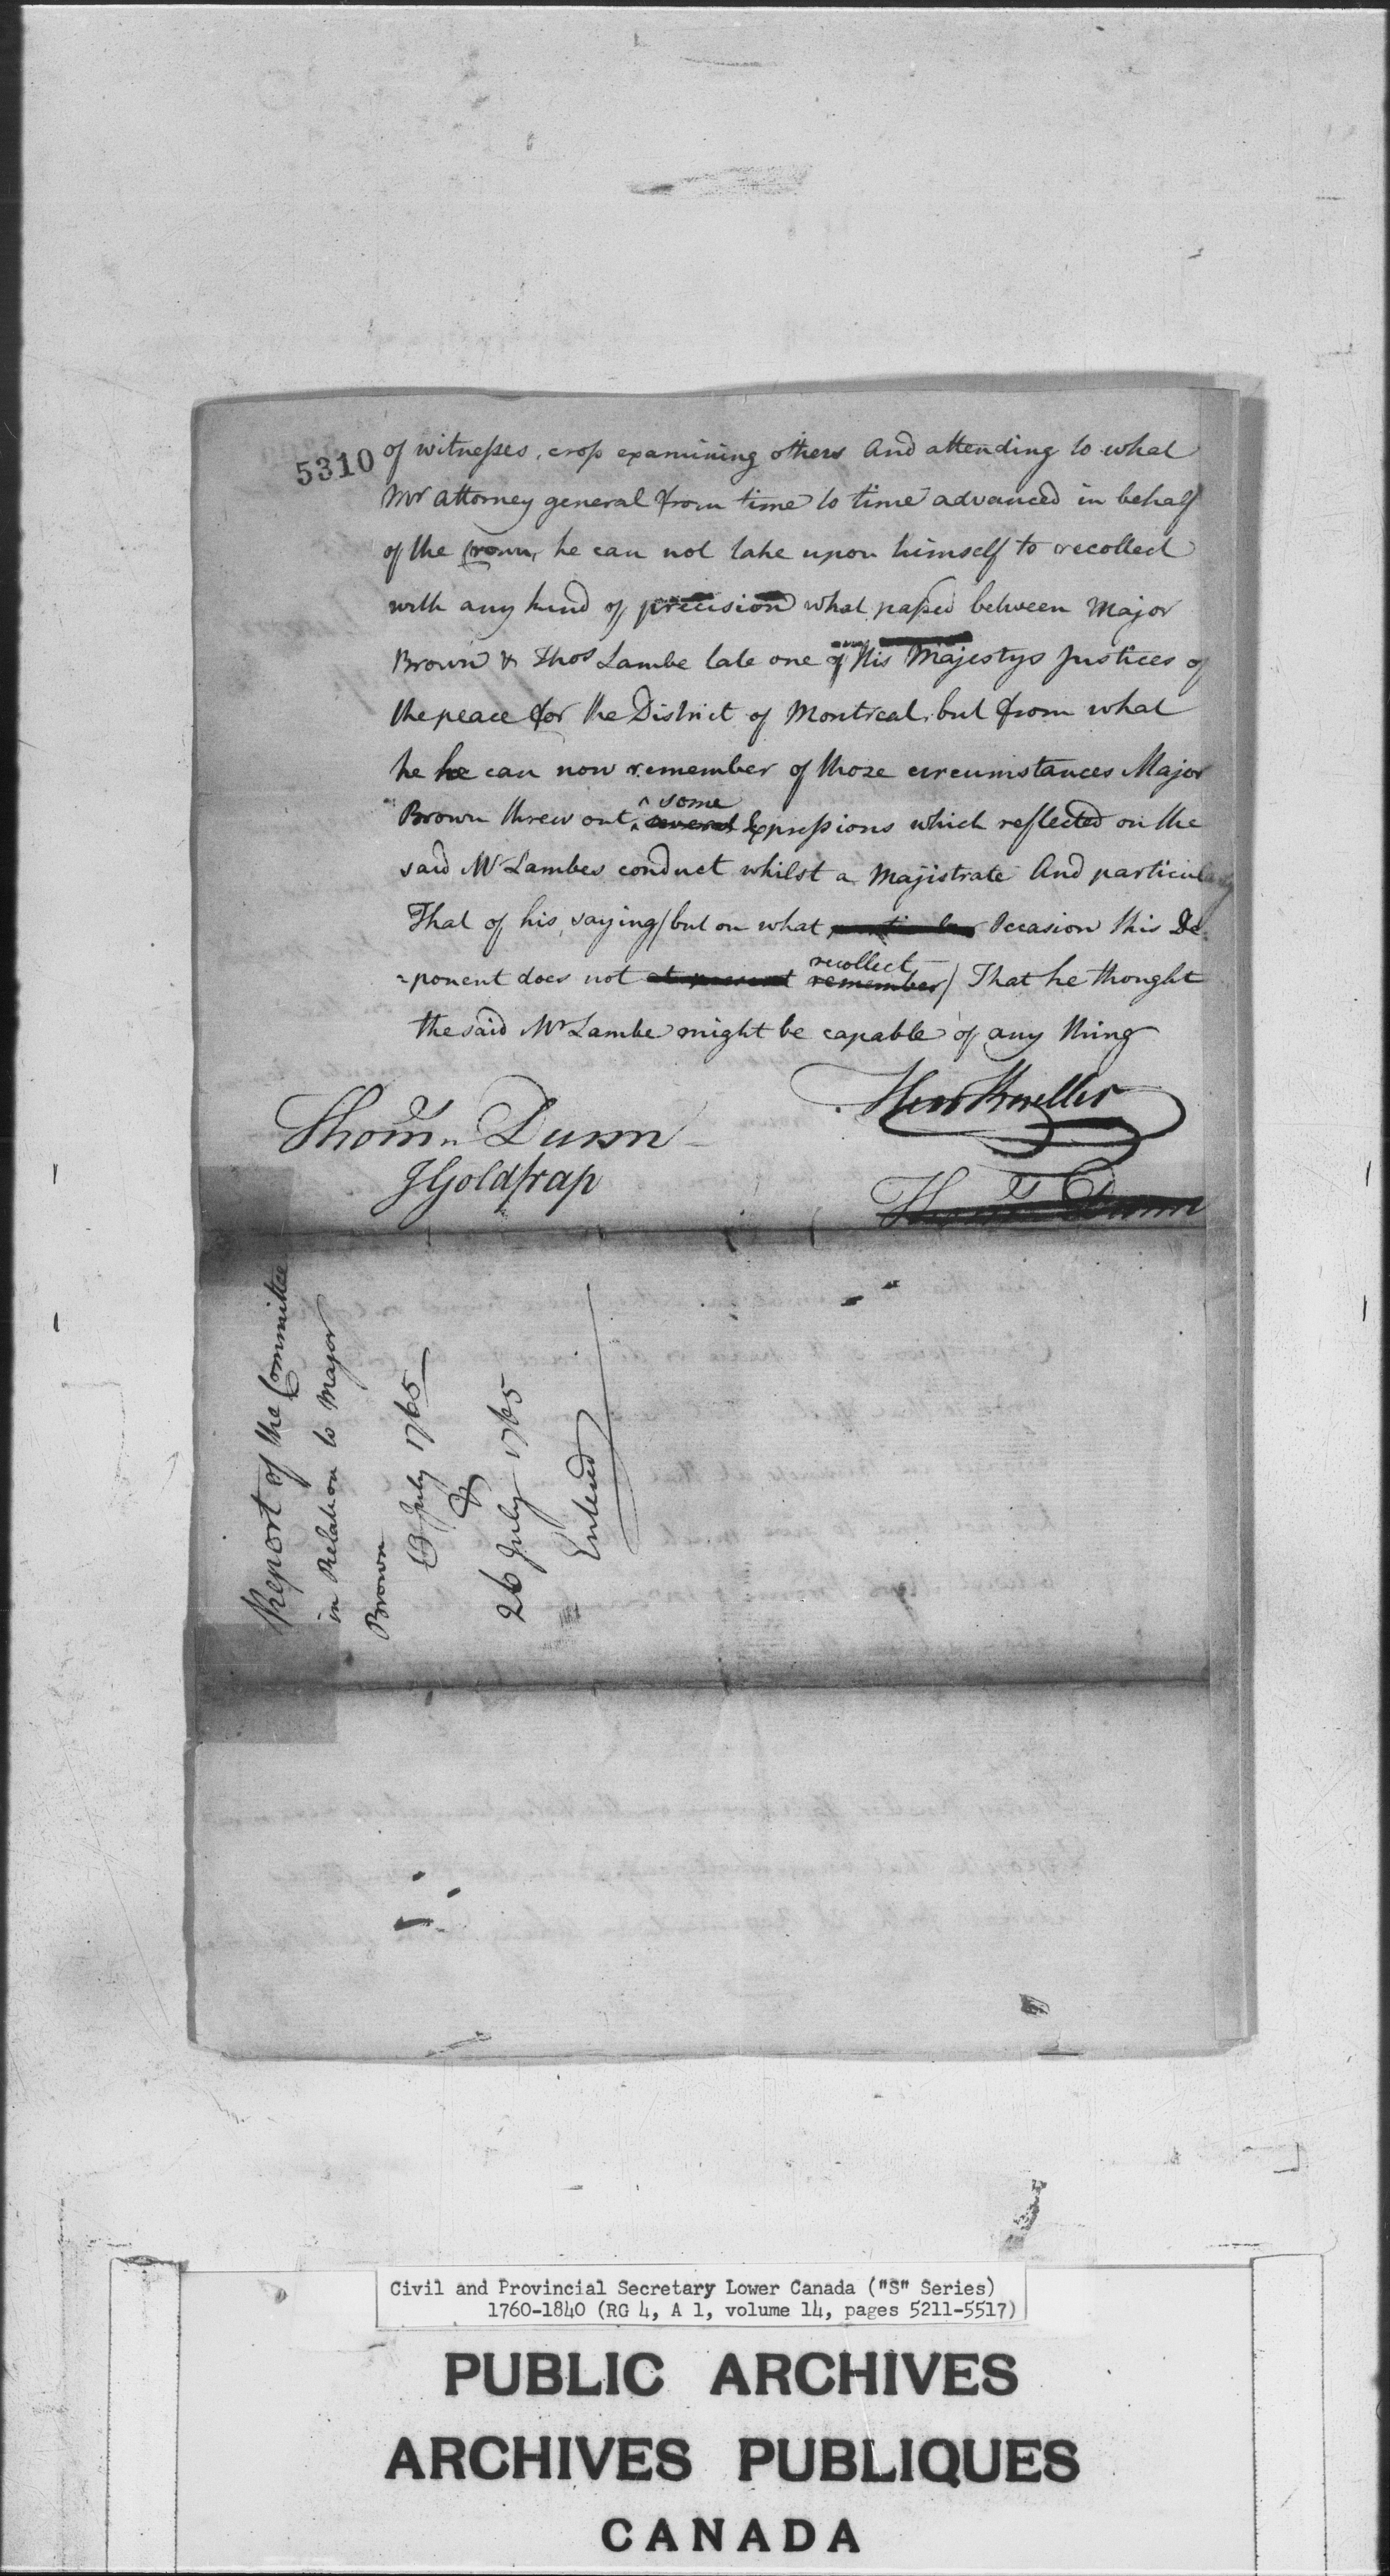 5310
of witnesses, cross examining others And attending to what
Mr Attorney general from time to time advanced in behalf
of the Crown, he can not take upon himself to recollect
with any kind of precision what passed between Major
Brown & Thos Lambe late one of His Majestys Justices of
the peace for the District of Montreal, but from what
he he can now remember of those circumstances Major
Brown threw out some several Expressions which reflected on the
said Mr Lambes conduct whilst a Majistrate And particularly
That of his saying (but on what particular Occasion this De
=ponent does not at present recollect remember) That he thought
the said Mr Lambe might be capable of any thing
Hen Kneller
Thoms Dunn
JGoldfrap
Thoms Dunn
Report of the Committee
in Relation to Major
Brown
July 1765
&
26 July 1765
Entered
Civil and Provincial Secretary Lower Canada ("S" Series)
1760-1840 (RG 4, A 1, volume 14, pages 5211-5517)
PUBLIC ARCHIVES
ARCHIVES PUBLIQUES
CANADA